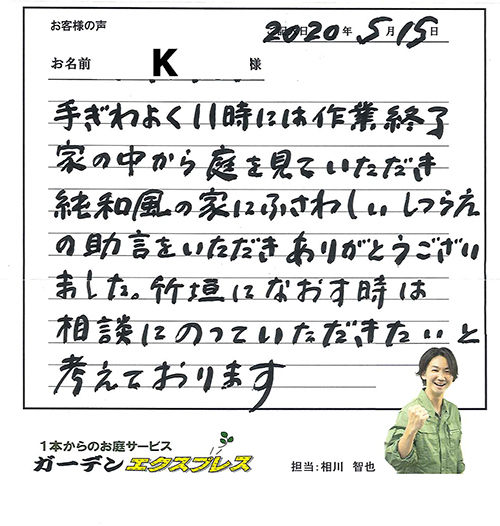 お客様の声
2020年5月15日
お名前 K 様
手ぎわよく11時には作業終了
家の中から庭を見ていただき
純和風の家にふさわしいしつらえ
の助言をいただきありがとうござい
ました。竹垣になおす時は
相談にのっていただきたいと
考えております
1本からのお庭サービス
ガーデンエクスプレス
担当:相川 智也